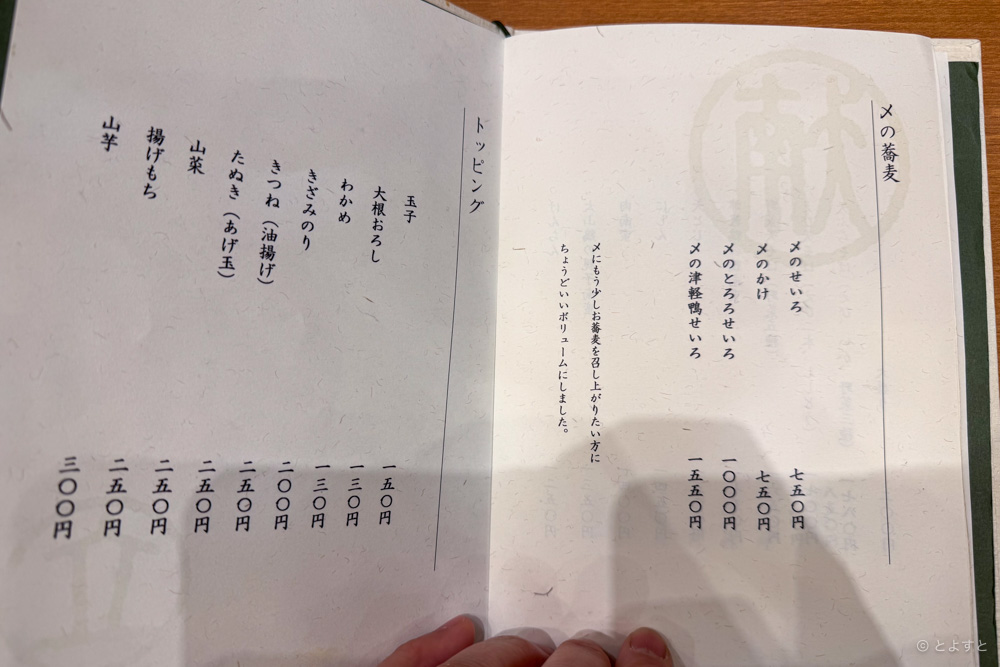 〆の蕎麦
〆のせいろ 七五〇円
〆のかけ 七五〇円
〆のとろろせいろ 一〇〇〇円
〆の津軽鴨せいろ 一五五〇円
〆にもう少しお蕎麦を召し上がりたい方に
ちょうどいいボリュームにしました。
トッピング
玉子 一五〇円
大根おろし 一三〇円
わかめ 一三〇円
きざみのり 二〇〇円
きつね（油揚げ） 二五〇円
たぬき（あげ玉） 二五〇円
山菜 二五〇円
揚げもち 二五〇円
山芋 三〇〇円
© とよすと